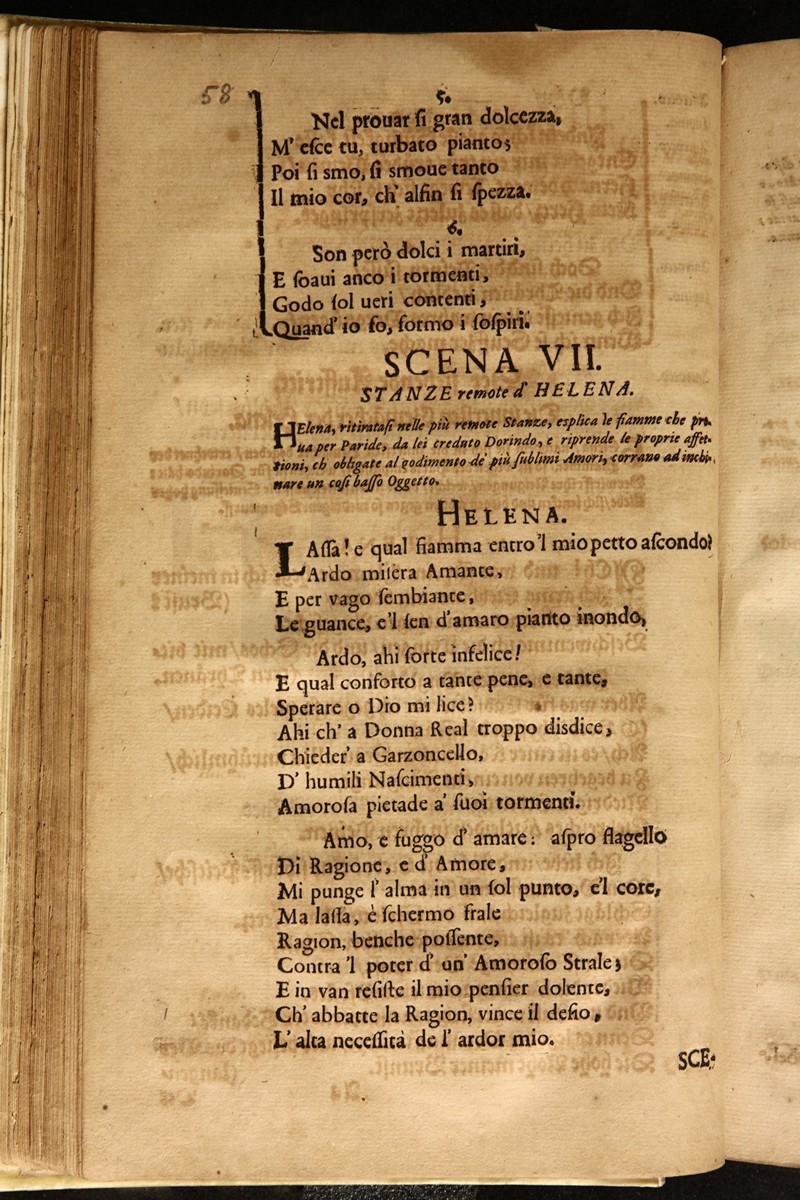 58
5.
Nel prouar ſi gran dolcezza,
M' eſce tu, turbato pianto;
Poi ſi smo, ſi smoue tanto
Il mio cor, ch' alfin ſi ſpezza.
6.
Son però dolci i martiri,
E ſoaui anco i tormenti,
Godo ſol ueri contenti,
Quand' io fo, formo i ſoſpiri.
SCENA VII.
STANZE remote d' HELENA.
HElena, ritirataſi nelle più remote Stanze, eſplica le fiamme che pro-
ua per Paride, da lei creduto Dorindo, e riprende le proprie affet-
tioni, ch obligate al godimento de' più ſublimi Amori, corrano ad inchi-
nare un coſi baſſo Oggetto.
HELENA.
LAſſa! e qual fiamma entro'l mio petto aſcondo?
Ardo miſera Amante,
E per vago ſembiante,
Le guance, e'l ſen d'amaro pianto inondo,
Ardo, ahi ſorte infelice!
E qual conforto a tante pene, e tante,
Sperare o Dio mi lice?
Ahi ch' a Donna Real troppo disdice,
Chieder' a Garzoncello,
D' humili Naſcimenti,
Amoroſa pietade a' ſuoi tormenti.
Amo, e fuggo d' amare: aſpro flagello
Di Ragione, e d' Amore,
Mi punge l' alma in un ſol punto, e'l core,
Ma laſſa, è ſchermo frale
Ragion, benche poſſente,
Contra 'l poter d' un' Amoroſo Strale;
E in van reſiſte il mio penſier dolente,
Ch' abbatte la Ragion, vince il deſio,
L' alta neceſſità de l' ardor mio.
SCE-